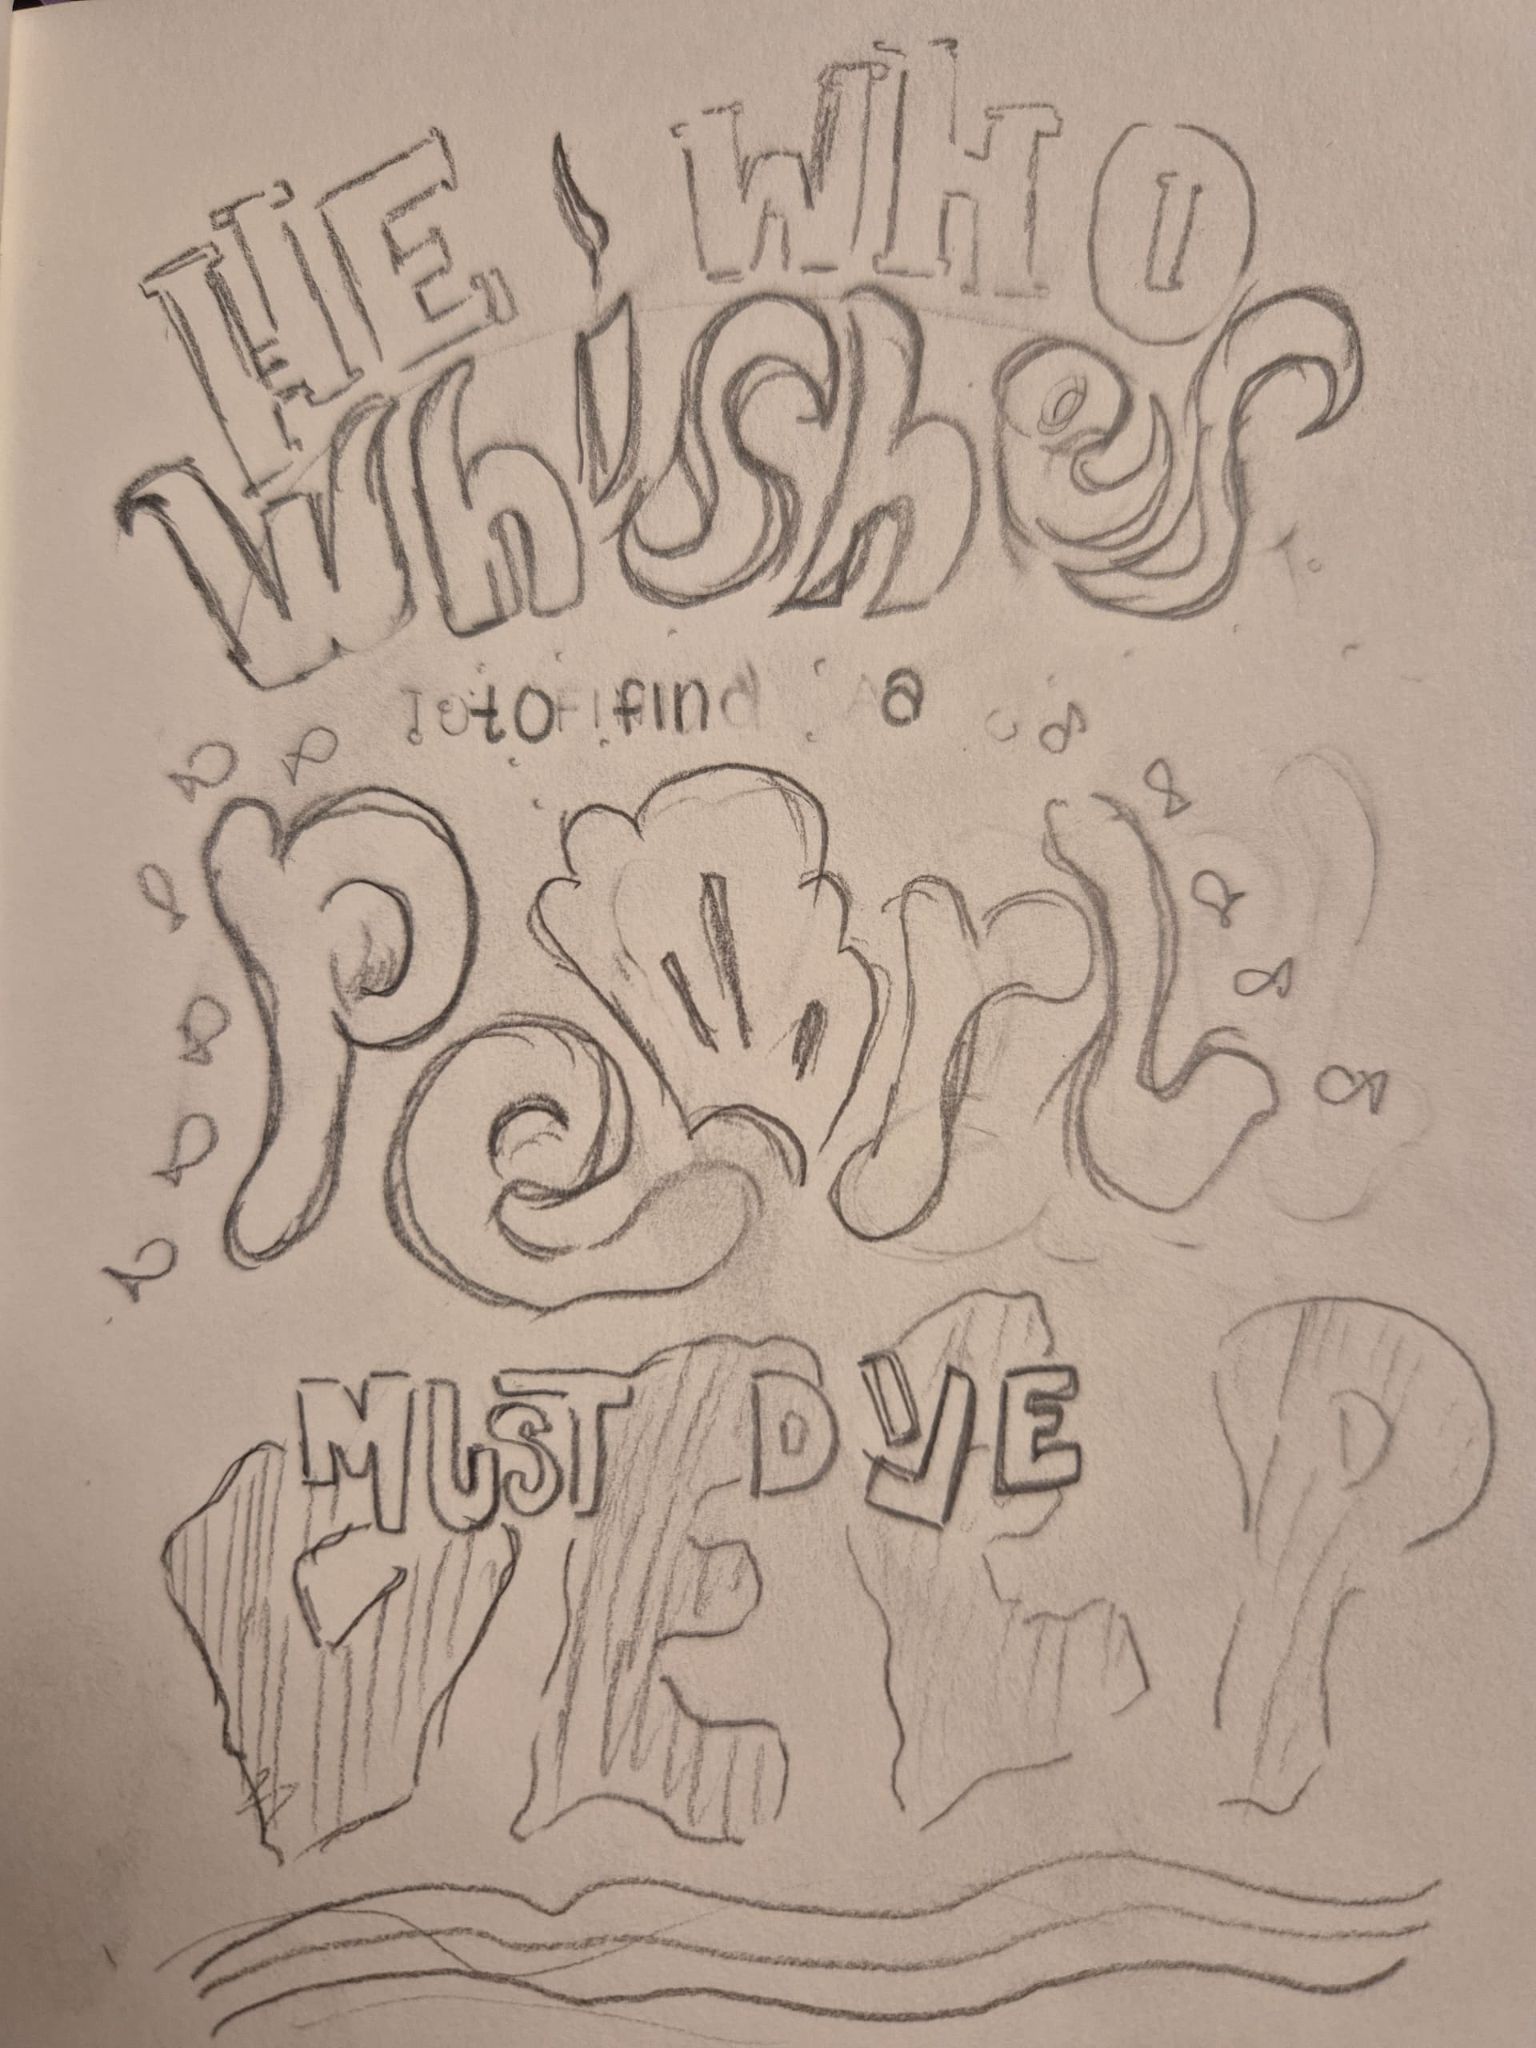 HE WHO
Whishes
to find a
Pearl
MUST DIVE
DEEP